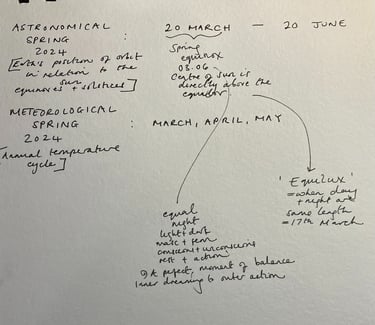 ASTRONOMICAL
SPRING
2024
[Earth's position of orbit
in relation to the
sun
equinoxes + solstices]
20 MARCH — 20 JUNE
Spring
equinox
03.06.
Centre of sun is
directly above the
equator
METEOROLOGICAL
SPRING : MARCH, APRIL, MAY
2024
[Annual temperature
cycle]
'Equilux'
= when day
+ night are
same length
= 17th March
equal
night
light + dark
masc + fem
conscious + unconscious
rest + action
A perfect, moment of balance
Inner dreaming to outer action